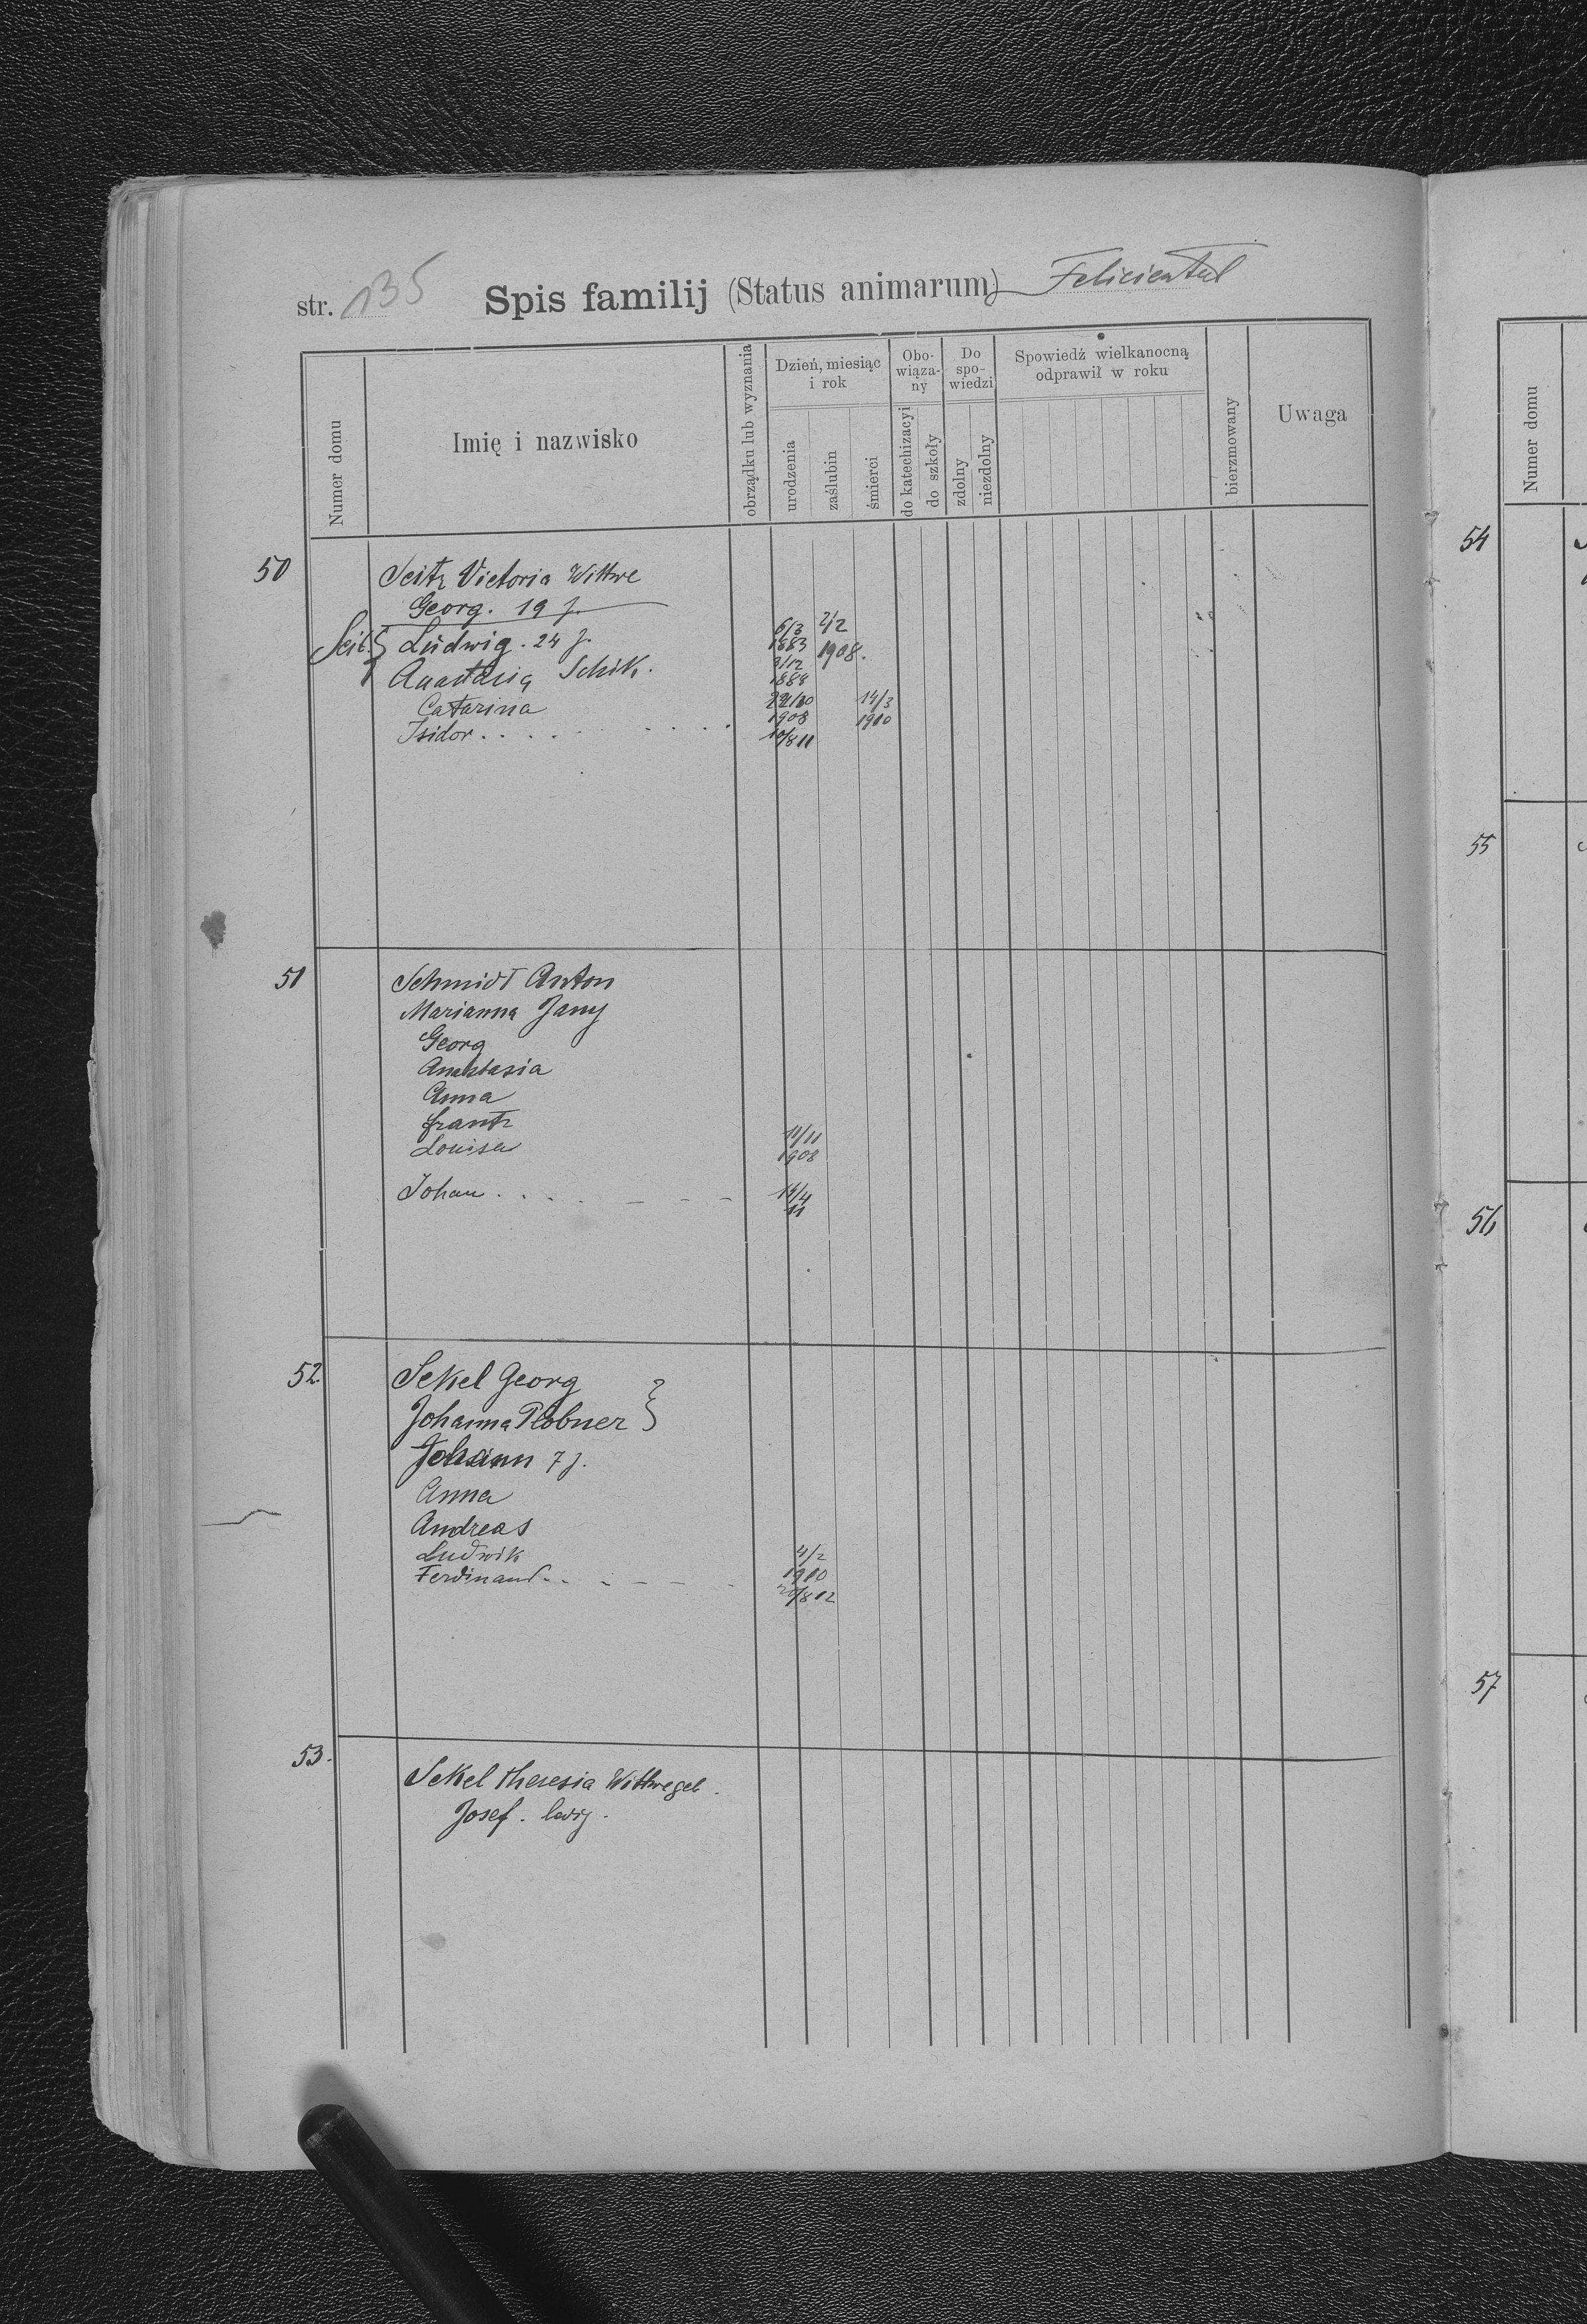 str. 135 Spis familij (Status animarum) Felicienthal
Numer domu
Imię i nazwisko
obrządku lub wyznania
Dzień, miesiąc i rok
urodzenia
zaślubin
śmierci
Obo-
wiąza-
ny
do katechizacyi
do szkoły
Do
spo-
wiedzi
zdolny
niezdolny
Spowiedź wielkanocną
odprawił w roku
bierzmowany
Uwaga
50 Seitz Victoria Wittwe
Georg. 19 j.
Seitz Ludwig. 24 j. 6/3 1883 2/2 1908.
Anastasia Schik. 1888
Catarina 1908 14/3 1910
Isidor 10/8 11
51 Schmidt Anton
Marianna Jany
Georg
Anastasia
Anna
Frantz
Louisa 11/11 1908
Johan 14/4 11
52. Sekel Georg
Johanna Plobner
Johann 7 j.
Anna
Andreas
Ludwik 4/2 1910
Ferdinand 20/8 12
53. Sekel Theresia
Josef. ledig.
Numer domu
54
55
56
57